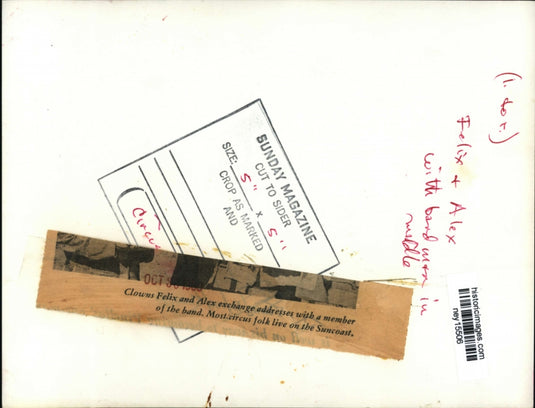 (l. to r.)
Felix + Alex
with band man in
middle
SUNDAY MAGAZINE
CUT TO SIDER
SIZE: 5" x 5"
CROP AS MARKED
AND
Circus
OCT
Clowns Felix and Alex exchange addresses with a member
of the band. Most circus folk live on the Suncoast.
historicimages.com
ney15506